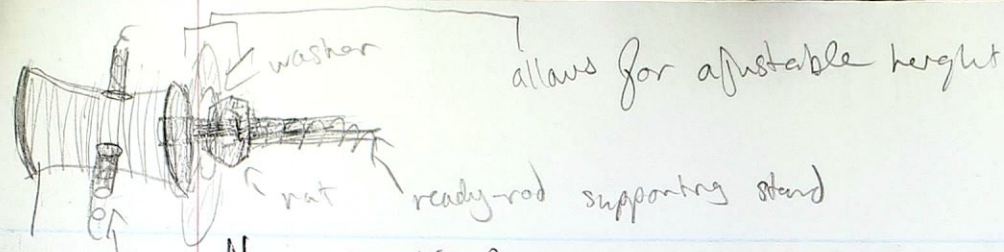 washer
allows for afustable height
nut
ready-rod supporting stand